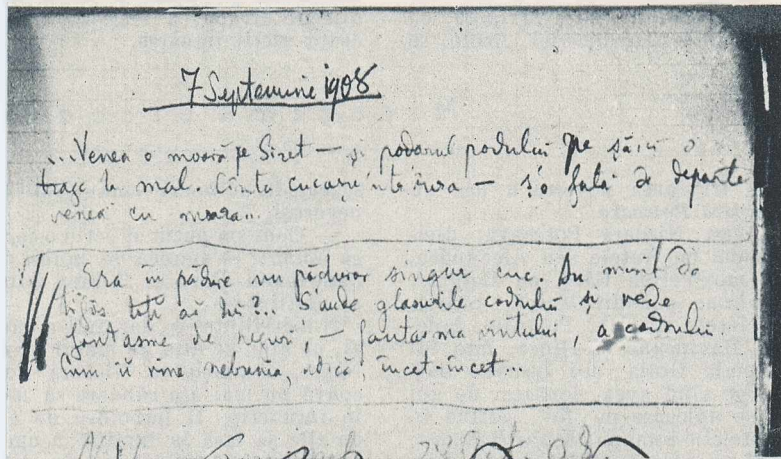 7 Septemvrie 1908
...Venea o moară pe Siret — și podarul podului pe săici o
trage la mal. Cînta cucoșu într'însa — ș'o fată de departe
venea cu moara...
Era în pădure un pădurar singur cuc. Au murit de
toți ai lui?... S'aude glasurile codrului și vede
fantasme de neguri, — fantasma vîntului, a codrului
Cum îi vine nebunia, adică, încet-încet...